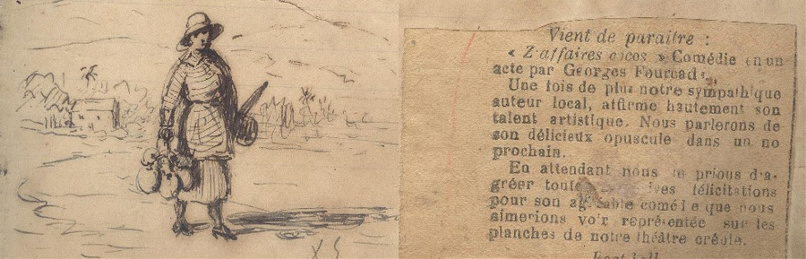 Vient de paraitre :
« Z'affaires cocos » Comédie en un
acte par Georges Fourcad
Une fois de plus notre sympathique
auteur local, affirme hautement son
talent artistique. Nous parlerons de
son délicieux opuscule dans un no
prochain.
En attendant nous le prions d'a-
gréer toutes ives félicitations
pour son agréable comédie que nous
aimerions voir représentée sur les
planches de notre théâtre créole.